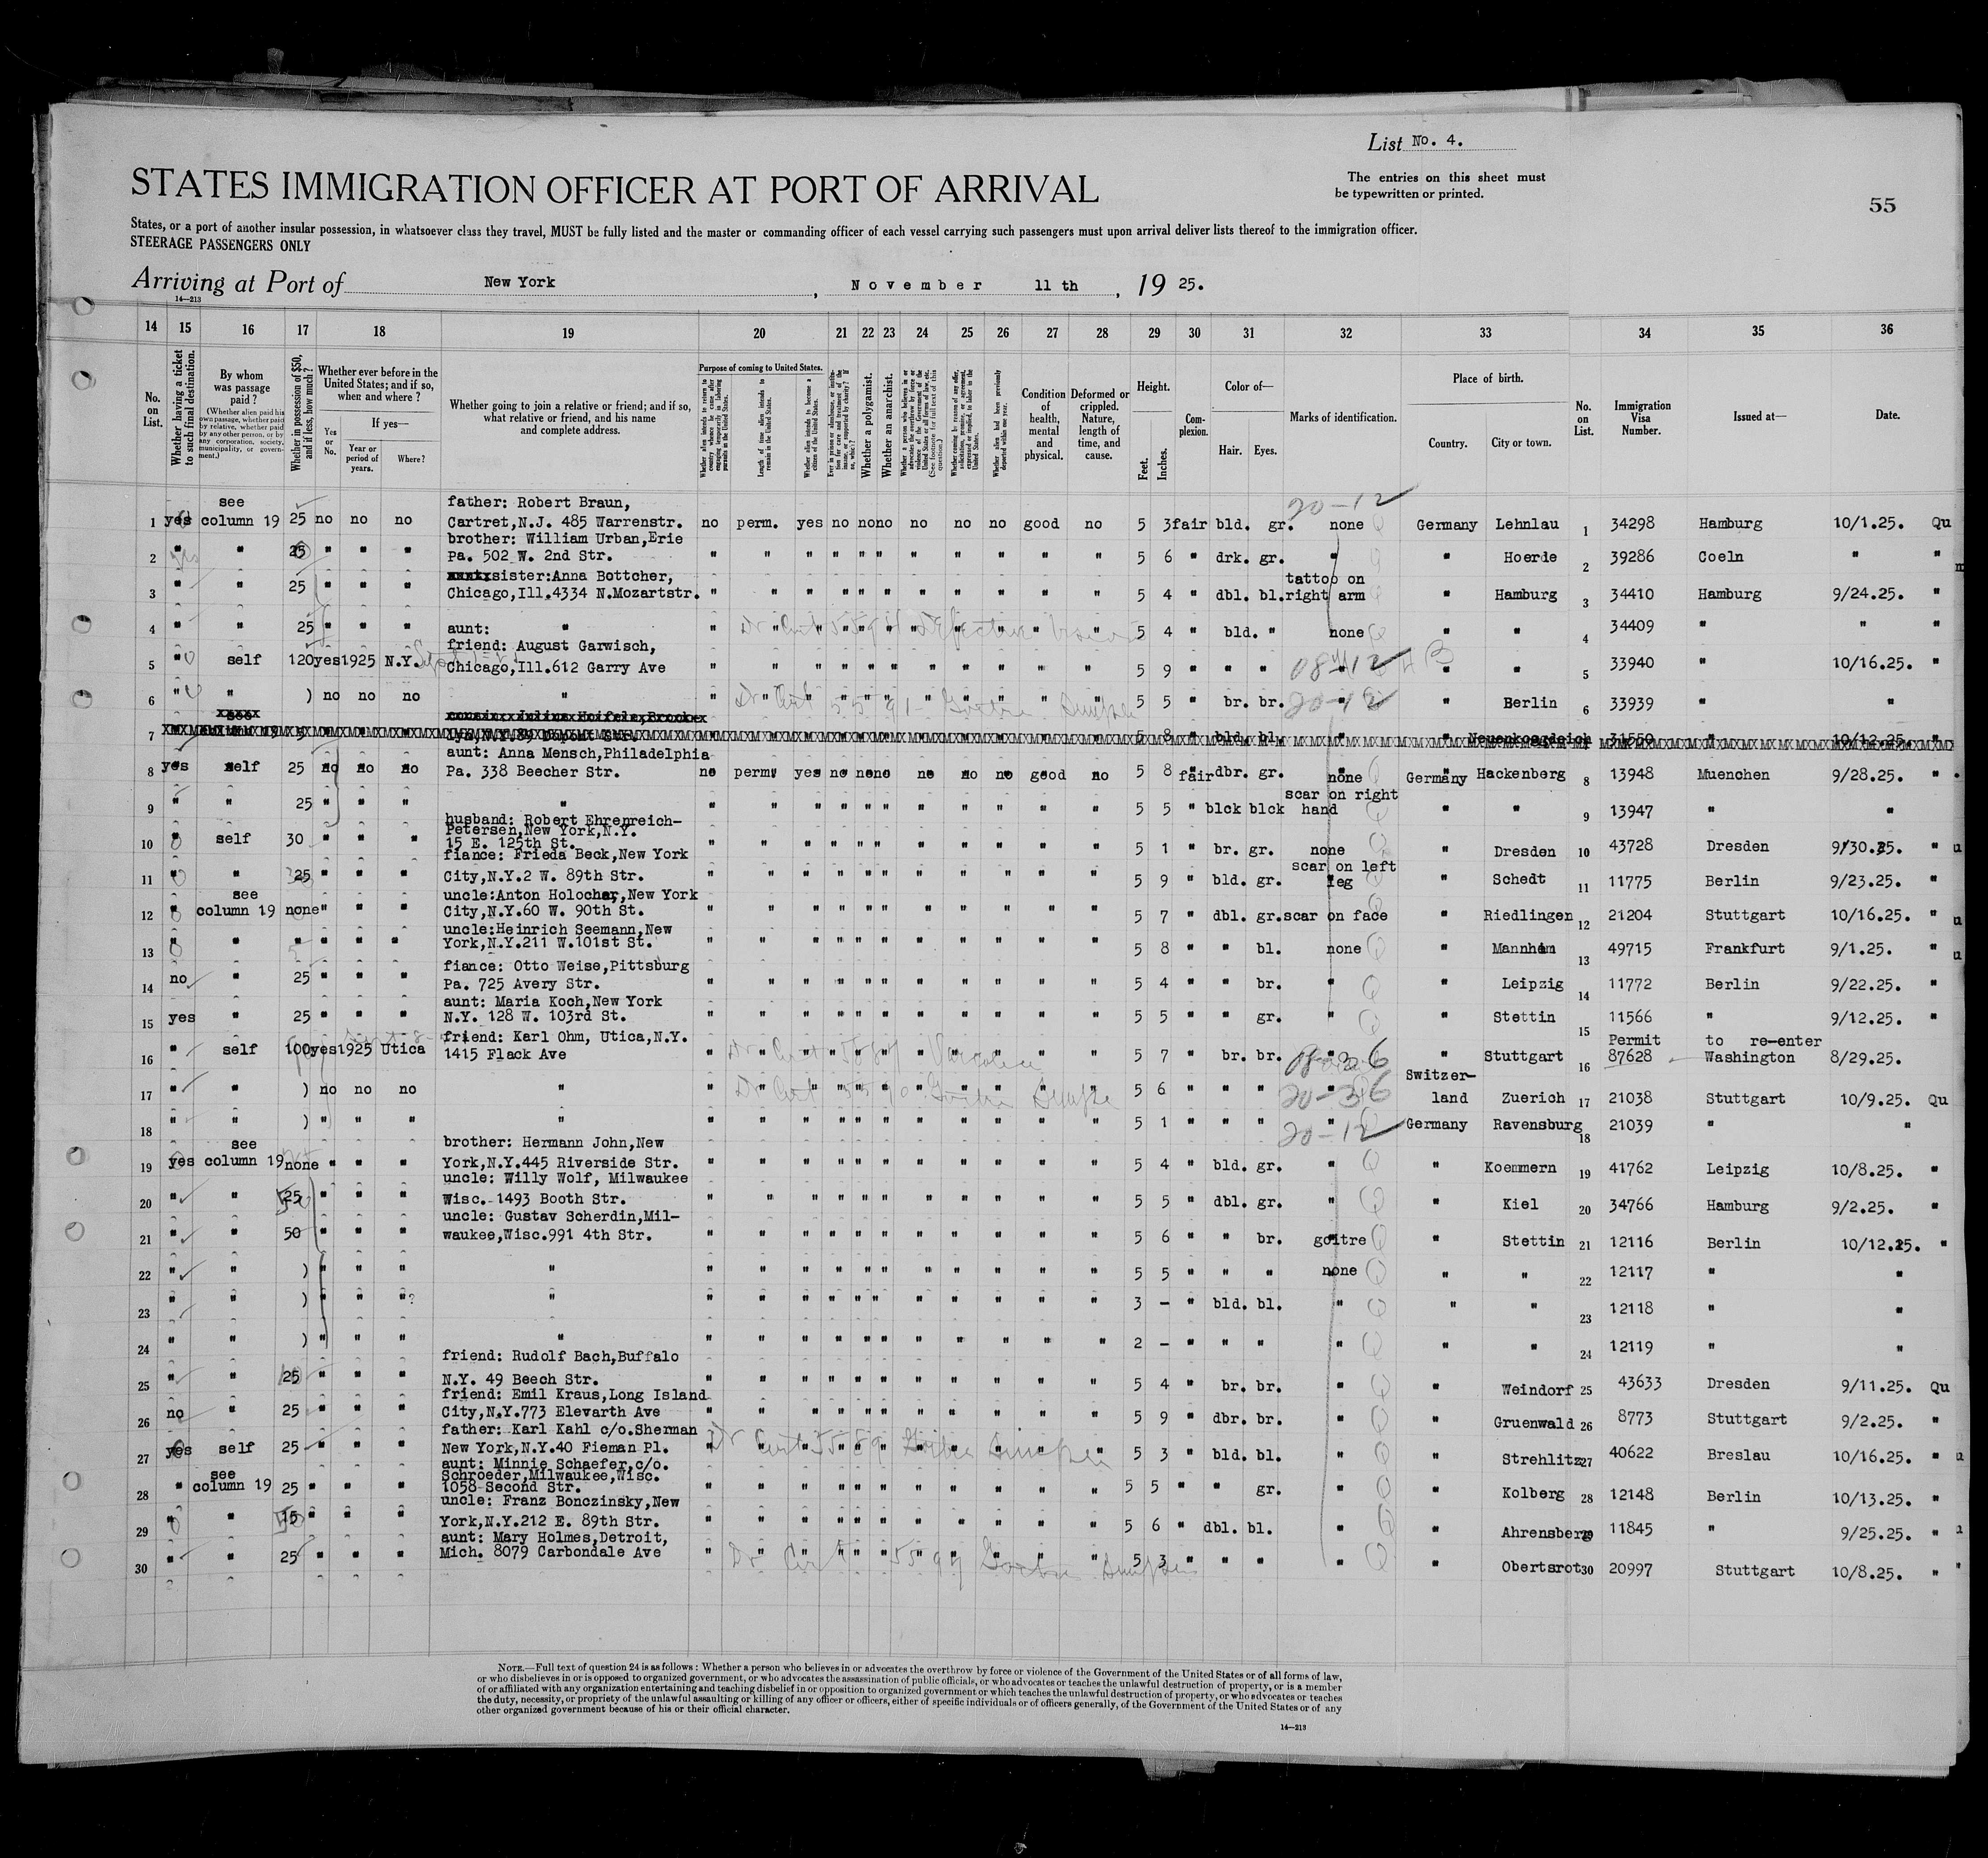 List No. 4.
STATES IMMIGRATION OFFICER AT PORT OF ARRIVAL
The entries on this sheet must
be typewritten or printed.
55
States, or a port of another insular possession, in whatsoever class they travel, MUST be fully listed and the master or commanding officer of each vessel carrying such passengers must upon arrival deliver lists thereof to the immigration officer.
STEERAGE PASSENGERS ONLY
Arriving at Port of New York, November 11 th, 19 25.
14—213
14 15 16 17 18 19 20 21 22 23 24 25 26 27 28 29 30 31 32 33 34 35 36
No. on List.
Whether having a ticket to such final destination.
By whom was passage paid?
(Whether alien paid his own passage, whether paid by relative, whether paid by any other person, or by any corporation, society, municipality, or government.)
Whether in possession of $50, and if less, how much?
Whether ever before in the United States; and if so, when and where?
Yes or No.
If yes—
Year or period of years.
Where?
Whether going to join a relative or friend; and if so, what relative or friend, and his name and complete address.
Purpose of coming to United States.
Length of time alien intends to remain in the United States.
Whether alien intends to become a citizen of the United States.
Whether a polygamist.
Whether an anarchist.
Condition of health, mental and physical.
Deformed or crippled. Nature, length of time, and cause.
Height.
Feet. Inches.
Complexion.
Color of—
Hair. Eyes.
Marks of identification.
Place of birth.
Country. City or town.
No. on List.
Immigration Visa Number.
Issued at—
Date.
20-12
see father: Robert Braun,
1 yes column 19 25 no no no Cartret,N.J. 485 Warrenstr. no perm. yes no no no no no no good no 5 3 fair bld. gr. none Germany Lehnlau 1 34298 Hamburg 10/1.25. Qu
brother: William Urban,Erie
2 " " 25 " " " Pa. 502 W. 2nd Str. " " " " " " " " " " " 5 6 " drk. gr. " " Hoerde 2 39286 Coeln " "
sister:Anna Bottcher, tattoo on
3 " " 25 " " " Chicago,Ill.4334 N.Mozartstr. " " " " " " " " " " " 5 4 " dbl. bl. right arm " Hamburg 3 34410 Hamburg 9/24.25. "
4 " " 25 " " " aunt: " " " " " " " " " " " " 5 4 " bld. " none " " 4 34409 " " "
friend: August Garwisch,
5 " self 120 yes 1925 N.Y. Chicago,Ill.612 Garry Ave " " " " " " " " " " " 5 9 " " " " " " 5 33940 " 10/16.25. "
6 " " ) no no no " " " " " " " " " " " " 5 5 " br. br. " " Berlin 6 33939 " "
7 5 8 bld. bl. Neuenkoogdeich 31550 " 10/12.25. "
aunt: Anna Mensch,Philadelphia
8 yes self 25 no no no Pa. 338 Beecher Str. no perm. yes no no no no no no good no 5 8 fair dbr. gr. none Germany Hackenberg 8 13948 Muenchen 9/28.25. "
scar on right
9 " " 25 " " " " " " " " " " " " " " " 5 5 " blck blck hand " " 9 13947 " "
husband: Robert Ehrenreich-
Petersen,New York,N.Y.
10 " self 30 " " " 15 E. 125th St. " " " " " " " " " " " 5 1 " br. gr. none " Dresden 10 43728 Dresden 9/30.25. "
fiance: Frieda Beck,New York scar on left
11 " " 25 " " " City,N.Y.2 W. 89th Str. " " " " " " " " " " " 5 9 " bld. gr. leg " Schedt 11 11775 Berlin 9/23.25. "
see uncle:Anton Holochar,New York
12 " column 19 none " " " City,N.Y.60 W. 90th St. " " " " " " " " " " " 5 7 " dbl. gr. scar on face " Riedlingen 12 21204 Stuttgart 10/16.25. "
uncle:Heinrich Seemann,New
13 " " " " " " York,N.Y.211 W.101st St. " " " " " " " " " " " 5 8 " " bl. none " Mannheim 13 49715 Frankfurt 9/1.25. "
fiance: Otto Weise,Pittsburg
14 no " 25 " " " Pa. 725 Avery Str. " " " " " " " " " " " 5 4 " " br. " " Leipzig 14 11772 Berlin 9/22.25. "
aunt: Maria Koch,New York
15 yes " 25 " " " N.Y. 128 W. 103rd St. " " " " " " " " " " " 5 5 " " gr. " " Stettin 15 11566 " 9/12.25. "
friend: Karl Ohm, Utica,N.Y. Permit to re-enter
16 " self 100 yes 1925 Utica 1415 Flack Ave " " " " " " " " " " " 5 7 " br. br. " " Stuttgart 16 87628 Washington 8/29.25.
Switzer-
17 " " ) no no no " " " " " " " " " " " " 5 6 " " " " land Zuerich 17 21038 Stuttgart 10/9.25. Qu
18 " " ) " " " " " " " " " " " " " " " 5 1 " " " 20-12 Germany Ravensburg 18 21039 " "
see brother: Hermann John,New
19 yes column 19 none " " " York,N.Y.445 Riverside Str. " " " " " " " " " " " 5 4 " bld. gr. " " Koemmern 19 41762 Leipzig 10/8.25. "
uncle: Willy Wolf, Milwaukee
20 " " 25 " " " Wisc. 1493 Booth Str. " " " " " " " " " " " 5 5 " dbl. gr. " " Kiel 20 34766 Hamburg 9/2.25. "
uncle: Gustav Scherdin,Mil-
21 " " 50 " " " waukee,Wisc.991 4th Str. " " " " " " " " " " " 5 6 " " br. goitre " Stettin 21 12116 Berlin 10/12.25. "
22 " " ) " " " " " " " " " " " " " " " 5 5 " " " none " " 22 12117 " "
23 " " ) " " "? " " " " " " " " " " " " 3 - " bld. bl. " " " 23 12118 " "
24 " " ) " " " " " " " " " " " " " " " 2 - " " " " " " 24 12119 " "
friend: Rudolf Bach,Buffalo
25 " " 25 " " " N.Y. 49 Beech Str. " " " " " " " " " " " 5 4 " br. br. " " Weindorf 25 43633 Dresden 9/11.25. Qu
friend: Emil Kraus,Long Island
26 no " 25 " " " City,N.Y.773 Elevarth Ave " " " " " " " " " " " 5 9 " dbr. br. " " Gruenwald 26 8773 Stuttgart 9/2.25. "
father: Karl Kahl c/o.Sherman
27 yes self 25 " " " New York,N.Y.40 Fieman Pl. " " " " " " " " " " " 5 3 " bld. bl. " " Strehlitz 27 40622 Breslau 10/16.25. "
aunt: Minnie Schaefer,c/o.
see Schroeder,Milwaukee,Wisc.
28 " column 19 25 " " " 1058 Second Str. " " " " " " " " " " " 5 5 " " gr. " " Kolberg 28 12148 Berlin 10/13.25. "
uncle: Franz Bonczinsky,New
29 " " 15 " " " York,N.Y.212 E. 89th Str. " " " " " " " " " " " 5 6 " dbl. bl. " " Ahrensberg 29 11845 " 9/25.25. "
aunt: Mary Holmes,Detroit,
30 " " 25 " " " Mich. 8079 Carbondale Ave " " " " " " " " " " " 5 3 " " " " " Obertsrot 30 20997 Stuttgart 10/8.25. "
NOTE.—Full text of question 24 is as follows: Whether a person who believes in or advocates the overthrow by force or violence of the Government of the United States or of all forms of law,
or who disbelieves in or is opposed to organized government, or who advocates the assassination of public officials, or who advocates or teaches the unlawful destruction of property, or is a member
of or affiliated with any organization entertaining and teaching disbelief in or opposition to organized government or which teaches the unlawful destruction of property, or who advocates or teaches
the duty, necessity, or propriety of the unlawful assaulting or killing of any officer or officers, either of specific individuals or of officers generally, of the Government of the United States or of any
other organized government because of his or their official character.
14—213